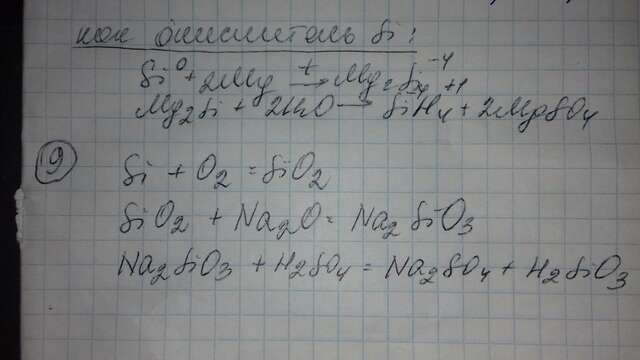 как окислитель Si:
Si⁰ + 2Mg →t Mg₂Si⁻⁴
Mg₂Si + 2H₂O → SiH₄⁺¹ + 2MgSO₄
9
Si + O₂ = SiO₂
SiO₂ + Na₂O = Na₂SiO₃
Na₂SiO₃ + H₂SO₄ = Na₂SO₄ + H₂SiO₃